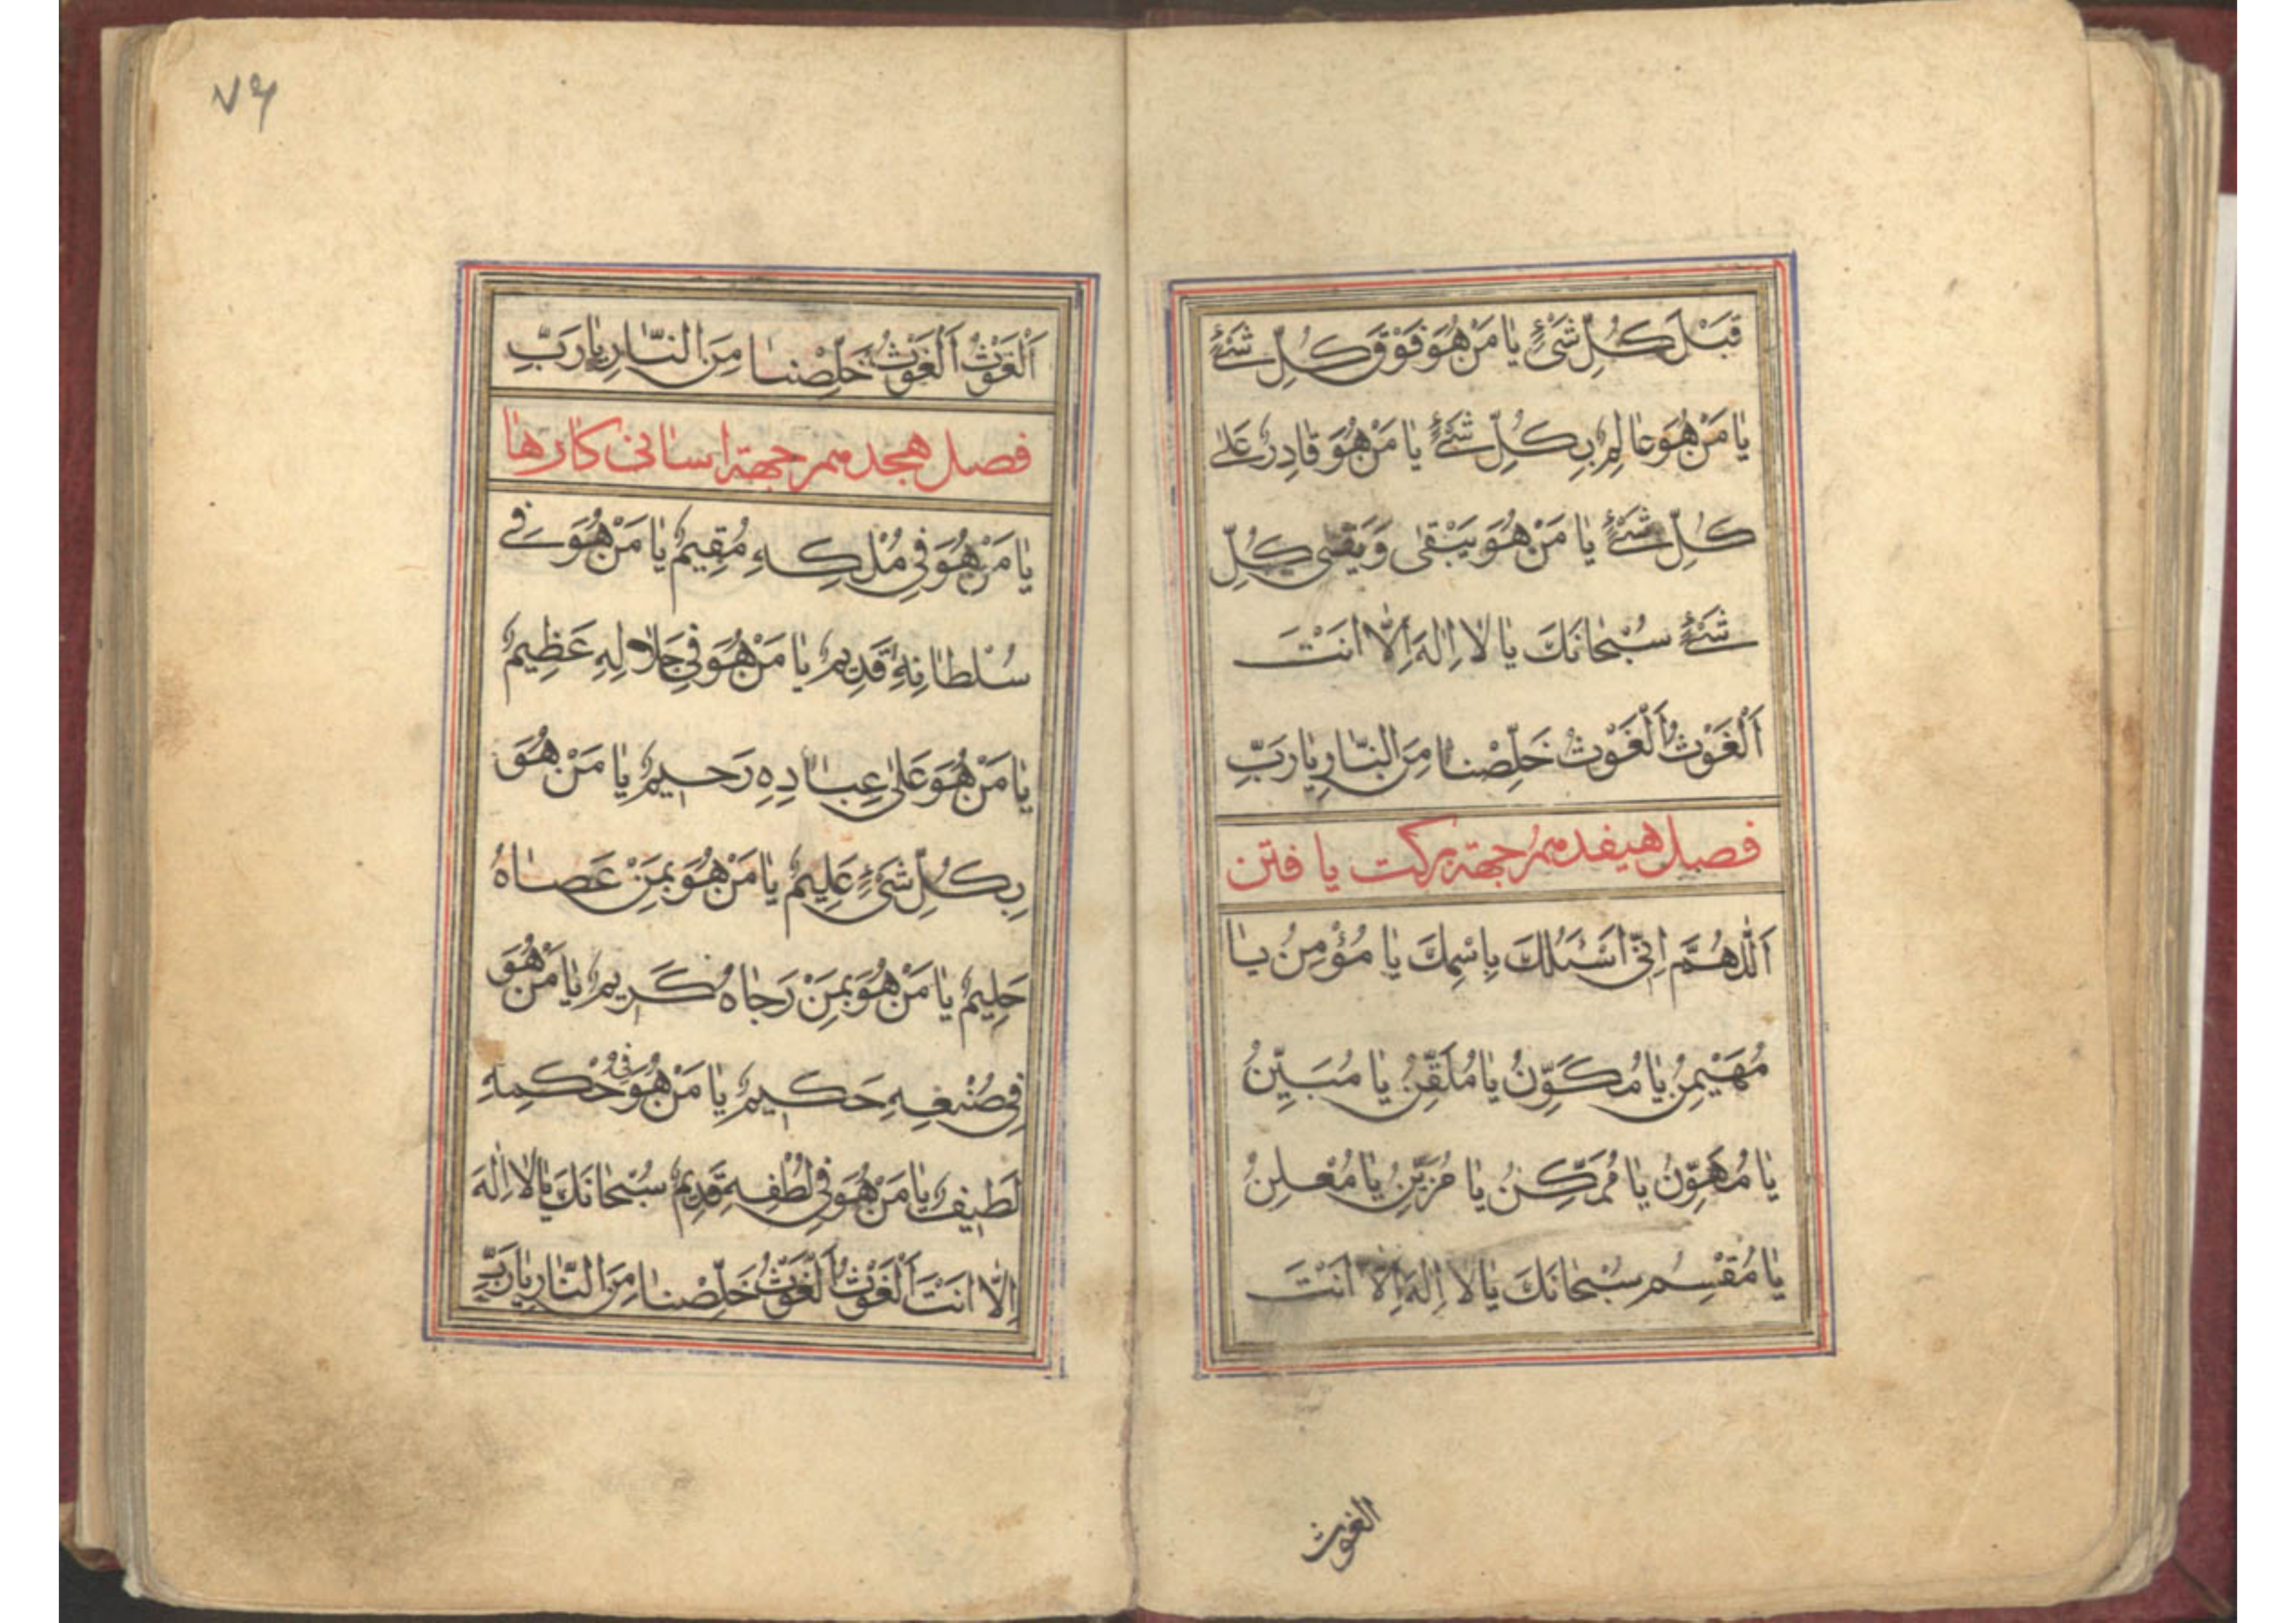 قَبْلَ كُلِّ شَیْءٍ یٰا مَنْ هُوَ فَوْقَ كُلِّ شَیْءٍ
یٰا مَنْ هُوَ عٰالِمٌ بِكُلِّ شَیْءٍ یٰا مَنْ هُوَ قٰادِرٌ عَلیٰ
كُلِّ شَیْءٍ یٰا مَنْ هُوَ یَبْقیٰ وَ یَفْنی كُلِّ
شَیْءٍ سُبْحٰانَكَ یٰا لٰا اِلٰهَ اِلّٰا اَنْتَ
اَلْغَوْثُ اَلْغَوْثُ خَلِّصْنٰا مِنَ النّٰارِ یٰا رَبِّ
فصل هیفدهم جهة بركت یافتن
اَللّٰهُمَّ اِنّی اَسْئَلُكَ بِاسْمِكَ یٰا مُؤْمِنُ یٰا
مُهَیْمِنُ یٰا مُكَوِّنُ یٰا مُلَقِّنُ یٰا مُبَیِّنُ
یٰا مُهَوِّنُ یٰا مُمَكِّنُ یٰا مُزَیِّنُ یٰا مُعْلِنُ
یٰا مُقْسِمُ سُبْحٰانَكَ یٰا لٰا اِلٰهَ اِلّٰا اَنْتَ
الغوث
۷۶
اَلْغَوْثُ اَلْغَوْثُ خَلِّصْنٰا مِنَ النّٰارِ یٰا رَبِّ
فصل هجدهم جهة اسانی كارها
یٰا مَنْ هُوَ فِی مُلْكِهِ مُقِیمٌ یٰا مَنْ هُوَ فِی
سُلْطٰانِهِ قَدِیمٌ یٰا مَنْ هُوَ فِی جَلٰالِهِ عَظِیمٌ
یٰا مَنْ هُوَ عَلیٰ عِبٰادِهِ رَحِیمٌ یٰا مَنْ هُوَ
بِكُلِّ شَیْءٍ عَلِیمٌ یٰا مَنْ هُوَ بِمَنْ عَصٰاهُ
حَلِیمٌ یٰا مَنْ هُوَ بِمَنْ رَجٰاهُ كَرِیمٌ یٰا مَنْ هُوَ
فِی صُنْعِهِ حَكِیمٌ یٰا مَنْ هُوَ فِی حُكْمِهِ
لَطِیفٌ یٰا مَنْ هُوَ فِی لُطْفِهِ قَدِیمٌ سُبْحٰانَكَ یٰا لٰا اِلٰهَ
اِلّٰا اَنْتَ اَلْغَوْثُ اَلْغَوْثُ خَلِّصْنٰا مِنَ النّٰارِ یٰا رَبِّ